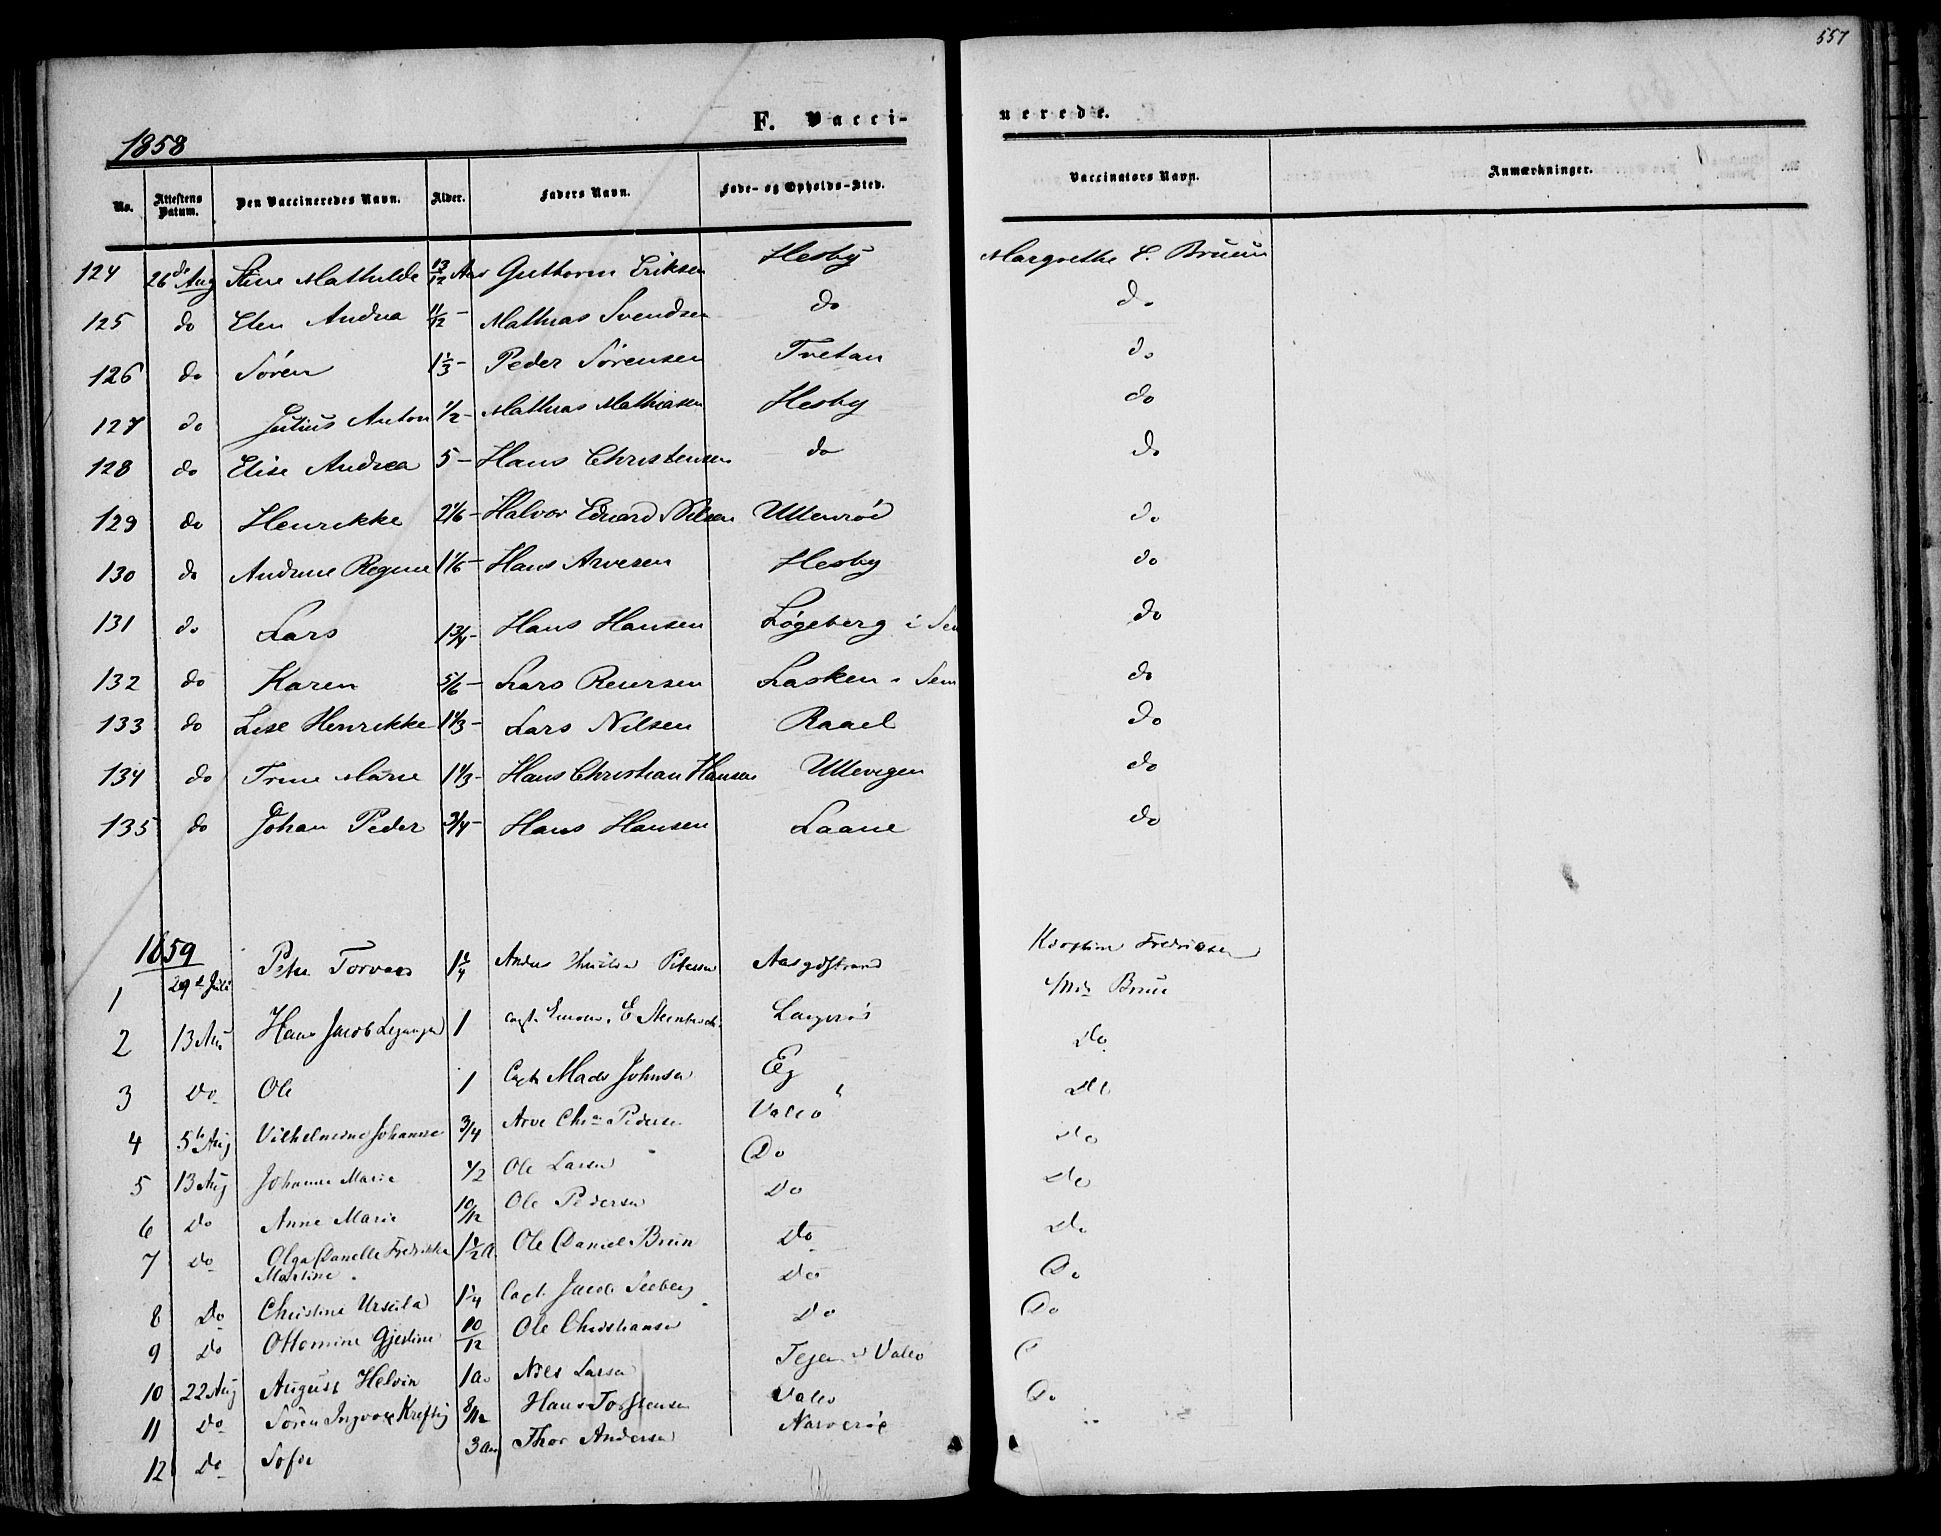 557
F. Vacci-
nerede.
1858
No. Attestens Datum. Den Vaccineredes Navn. Alder. Faders Navn. Føde- og Opholds-Sted. Vaccinators Navn. Anmærkninger.
124 26de Aug Stine Mathilde 13/12 Aar Guthorm Eriksen Hesby Margrethe E. Bruun
125 do Elen Andrea 11/12 - Mathias Svendsen do do
126 do Sören 1 1/3 - Peder Sörensen Tvetan do
127 do Julius Anton 1/2 - Mathias Mathiasen Hesby do
128 do Elise Andrea 5 - Hans Christensen do do
129 do Henrikke 2 1/6 - Halvor Eduard Nilsen Ullenröd do
130 do Andrine Regine 1 1/6 - Hans Arvesen Hesby do
131 do Lars 1 3/4 - Hans Hansen Løgeberg i Sem do
132 do Karen 5/6 - Lars Reiersen Lasken i Sem do
133 do Lise Henrikke 1 1/3 - Lars Nilsen Raael do
134 do Trine Marie 1 1/3 - Hans Christian Hansen Ullevigen do
135 do Johan Peder 3/4 - Hans Hansen Laane do
1859
1 29de Juli Petra 1 1/4 Petersen Aasgdstrand Fredriksen
2 13 Aug Hans Jacob 1 E Bruu
3 Do Ole 1 Capt. Mads Johnsen Eg Do
4 5te Aug Vilhelmine Johanne 3/4 Arve Chr. Pedersen Valeo Do
5 13 Aug Johanne Marie 1/2 Ole Larsen Do Do
6 Do Anne Marie 10/12 Ole Pedersen Do Do
7 Do Olga Danelle Fredrikke 1 1/2 A. Ole Daniel Bruun Do Do
Martine
8 Do Christine Ursula 1 1/4 Capt. Jacob Seeberg Do Do
9 Do Ottomine Gjestine 10/12 Ole Christiansen Do Do
10 22 Aug August Helvin 1 a. Nils Larsen Valeo
11 Do Sören Ingvald 8/12 Hans Torstensen Valeo Do
12 Do Sofie 3 aar Thor Andersen Narveröe